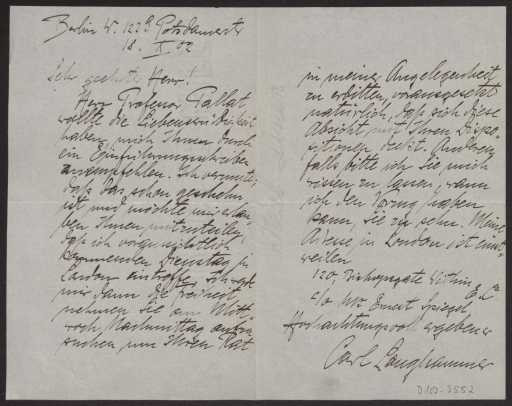 Berlin W. 123a Potsdamerstr
18. X. 02
Sehr geehrter Herr!
Herr Professor Pallat,
wollte die Liebenswürdigkeit
haben, mich Ihnen durch
ein Einführungsschreiben
anzuempfehlen. Ich vermute,
daß das schon geschehn
ist und möchte mir erlau-
ben Ihnen mitzuteilen,
daß ich voraussichtlich
kommenden Dienstag in
London eintreffe. Ich
mir dann die Freiheit
nehmen Sie am Mitt-
woch Nachmittag aufzu-
suchen um Ihren Rat
in meiner Angelegenheit
zu erbitten, vorausgesetzt
natürlich, daß sich diese
Absicht mit Ihren Dispo-
sitionen deckt. Andern-
falls bitte ich Sie mich
wissen zu lassen, wann
ich den Vorzug haben
kann, Sie zu sehn. Meine
Adresse in London ist einst-
weilen
120, Bishopsgate Within E.C.
c/o Mr Ernest Spiegel,
Hochachtungsvoll ergebener
Carl Langhammer
D100-3552